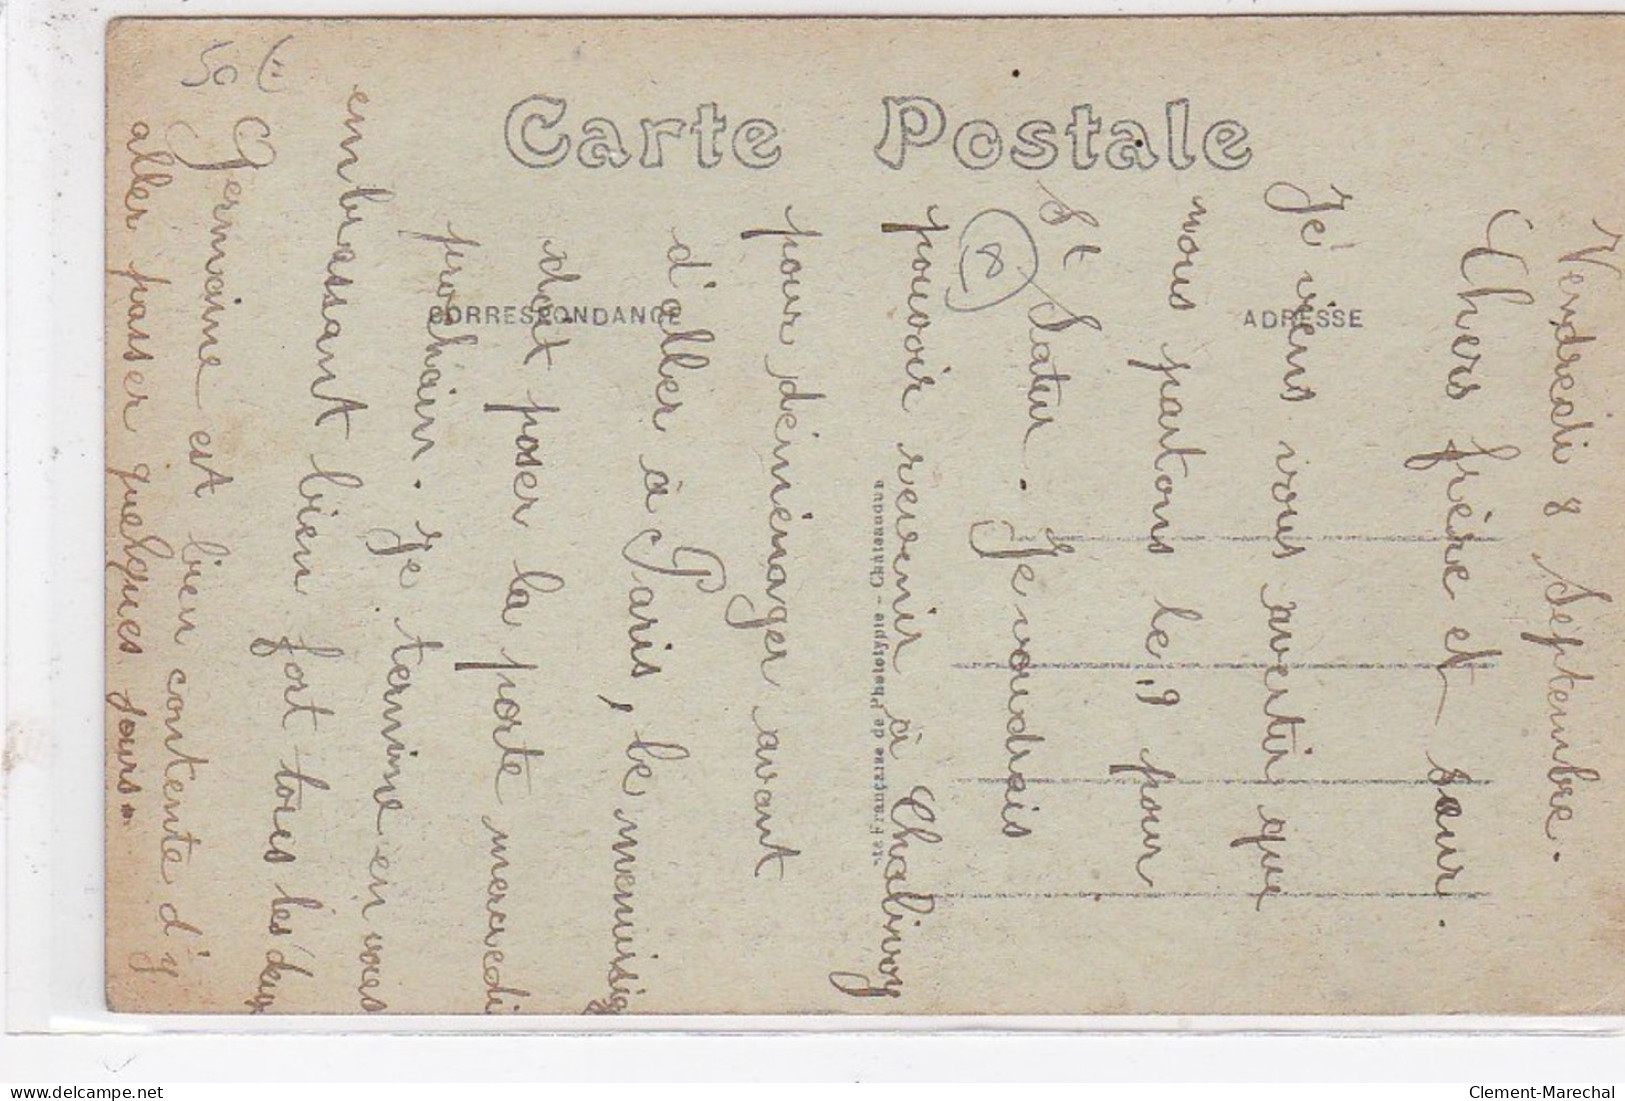 Carte Postale
CORRESPONDANCE
ADRESSE
Vendredi 8 Septembre.
Chers frère et sœur.
Je viens vous avertir que
nous partons le 9 pour
St Satur. Je voudrais
pouvoir revenir à Chalivoy
pour déménager avant
d'aller à Paris, le menuisier
doit poser la porte mercredi
prochain. Je termine en vous
embrassant bien fort tous les deux
Germaine est bien contente d'y
aller passer quelques jours.
té Française de Phototypie - Châteauroux
8
50
Clement-Marechal